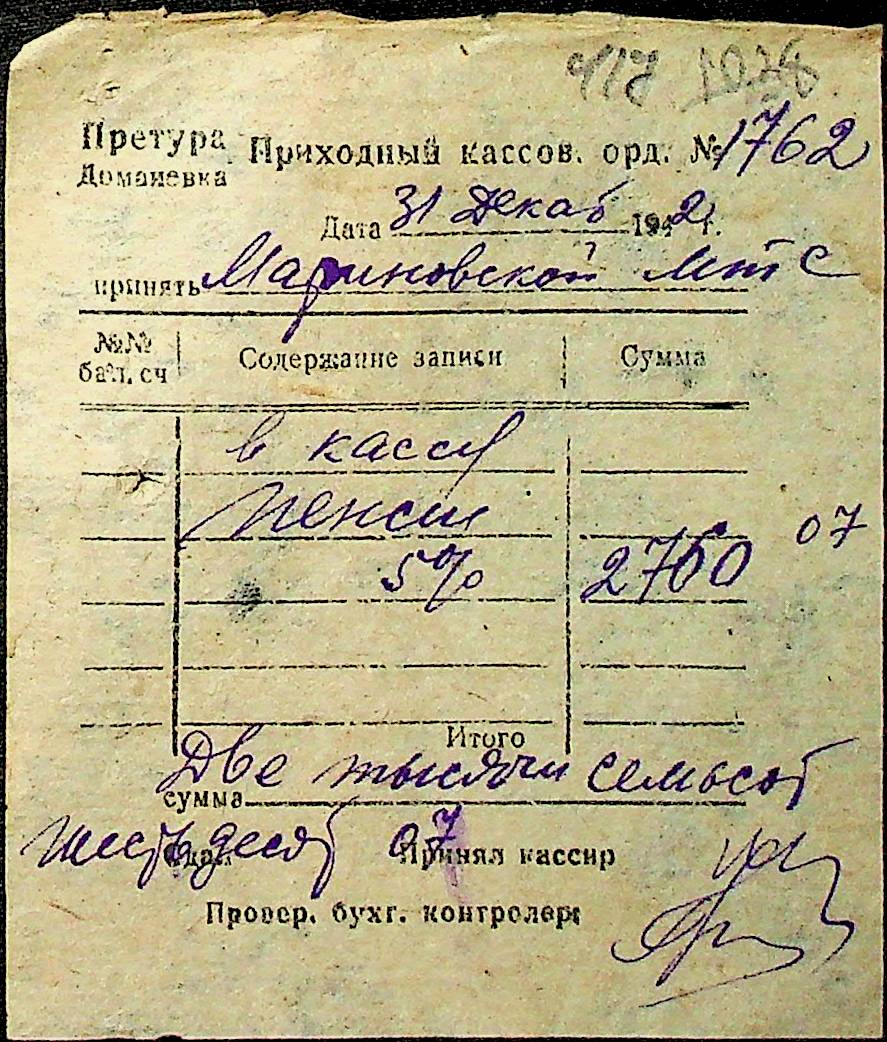 Претура Приходный кассов. орд. № 1762
Доманевка
Дата 31 Декаб 1942 г.
принять Мариновской мтс
№№ бал. сч Содержание записи Сумма
в кассу
Пенсии
5% 2760 07
Итого
Две тысячи семьсот
сумма
шестьдесят 07
Сдал Принял кассир
Провер. бухг. контролер: